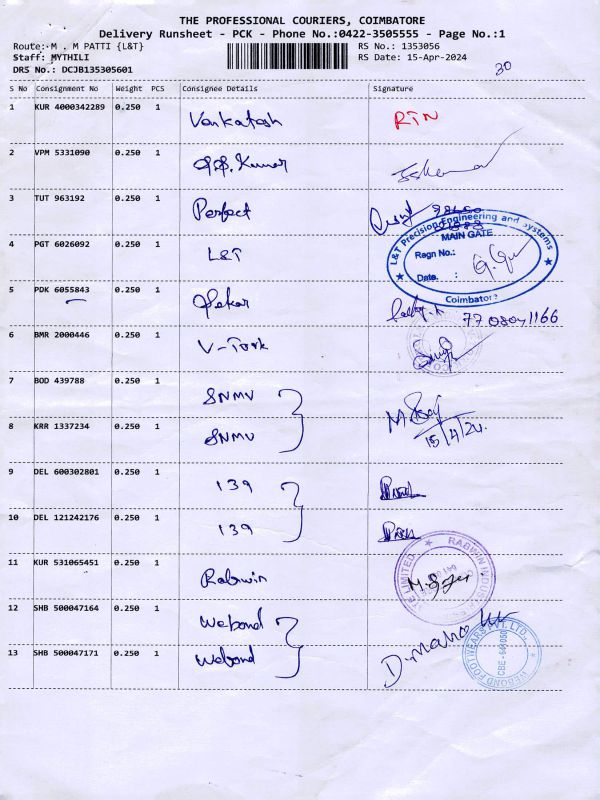 THE PROFESSIONAL COURIERS, COIMBATORE
Delivery Runsheet - PCK - Phone No.:0422-3505555 - Page No.:1
Route: M . M PATTI {L&T}
RS No.: 1353056
Staff: MYTHILI
RS Date: 15-Apr-2024
DRS No.: DCJB135305601
30
S No Consignment No Weight PCS Consignee Details Signature
1 KUR 4000342289 0.250 1 Venkatesh RTN
2 VPM 5331090 0.250 1 Kumar
3 TUT 963192 0.250 1 Perfect
4 PGT 6026092 0.250 1 L&T
L&T Precision Engineering and Systems
MAIN GATE
Regn No.:
Date. :
Coimbatore
5 PDK 6055843 0.250 1 Sekar
77 08041166
6 BMR 2000446 0.250 1 V-Tork
7 BOD 439788 0.250 1 SNMV
8 KRR 1337234 0.250 1 SNMV
15/4/24.
9 DEL 600302801 0.250 1 139
10 DEL 121242176 0.250 1 139
11 KUR 531065451 0.250 1 Rabwin
RABWIN INDUSTRIES LIMITED
12 SHB 500047164 0.250 1 Webond
13 SHB 500047171 0.250 1 Webond
WEBOND FOOTWEARS PVT LTD.,
CBE-641050